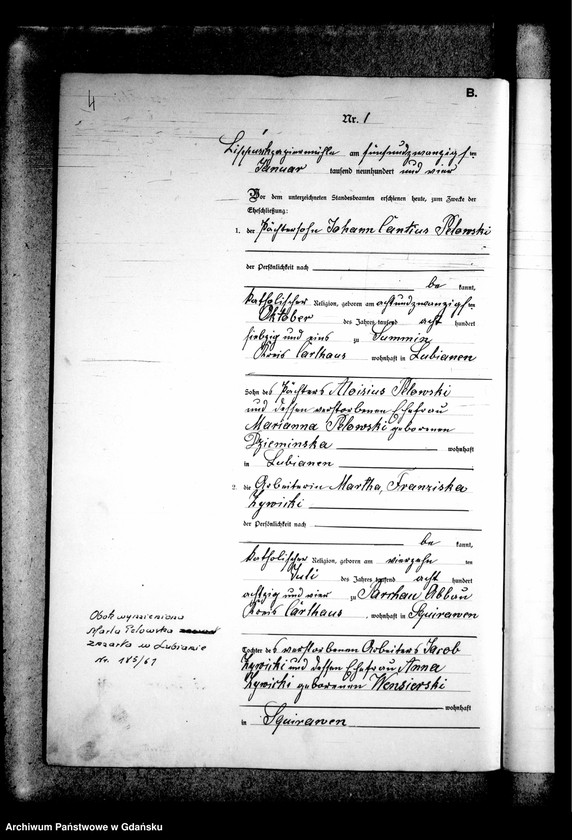 4
B.
Nr. 1
am fünfundzwanzigsten
Januar tausend neunhundert und vier
Vor dem unterzeichneten Standesbeamten erschienen heute, zum Zwecke der
Eheschließung:
1. der Pächtersohn Johann Cantius Pelowski
der Persönlichkeit nach
be kannt,
katholischer Religion, geboren am achtundzwanzigsten
Oktober des Jahres tausend acht hundert
siebzig und eins zu Summin
Kreis Carthaus, wohnhaft in Lubianen
Sohn des Pächters Aloisius Pelowski
und dessen verstorbenen Ehefrau
Marianna Pelowski geborenen
Dzieminska wohnhaft
in Lubianen
2. die Arbeiterin Martha, Franziska
Zywicki
der Persönlichkeit nach
be kannt,
katholischer Religion, geboren am vierzehn ten
Juli des Jahres tausend acht hundert
achtzig und vier zu Abbau
Kreis Carthaus, wohnhaft in Squirawen
Tochter des verstorbenen Arbeiters Jacob
Zywicki und dessen Ehefrau Anna
Zywicki geborenen Wensierski
wohnhaft
in Squirawen
Obok wymieniona
Marta Pelowska
zmarła w Lubianie
Nr. 175/61
Archiwum Państwowe w Gdańsku